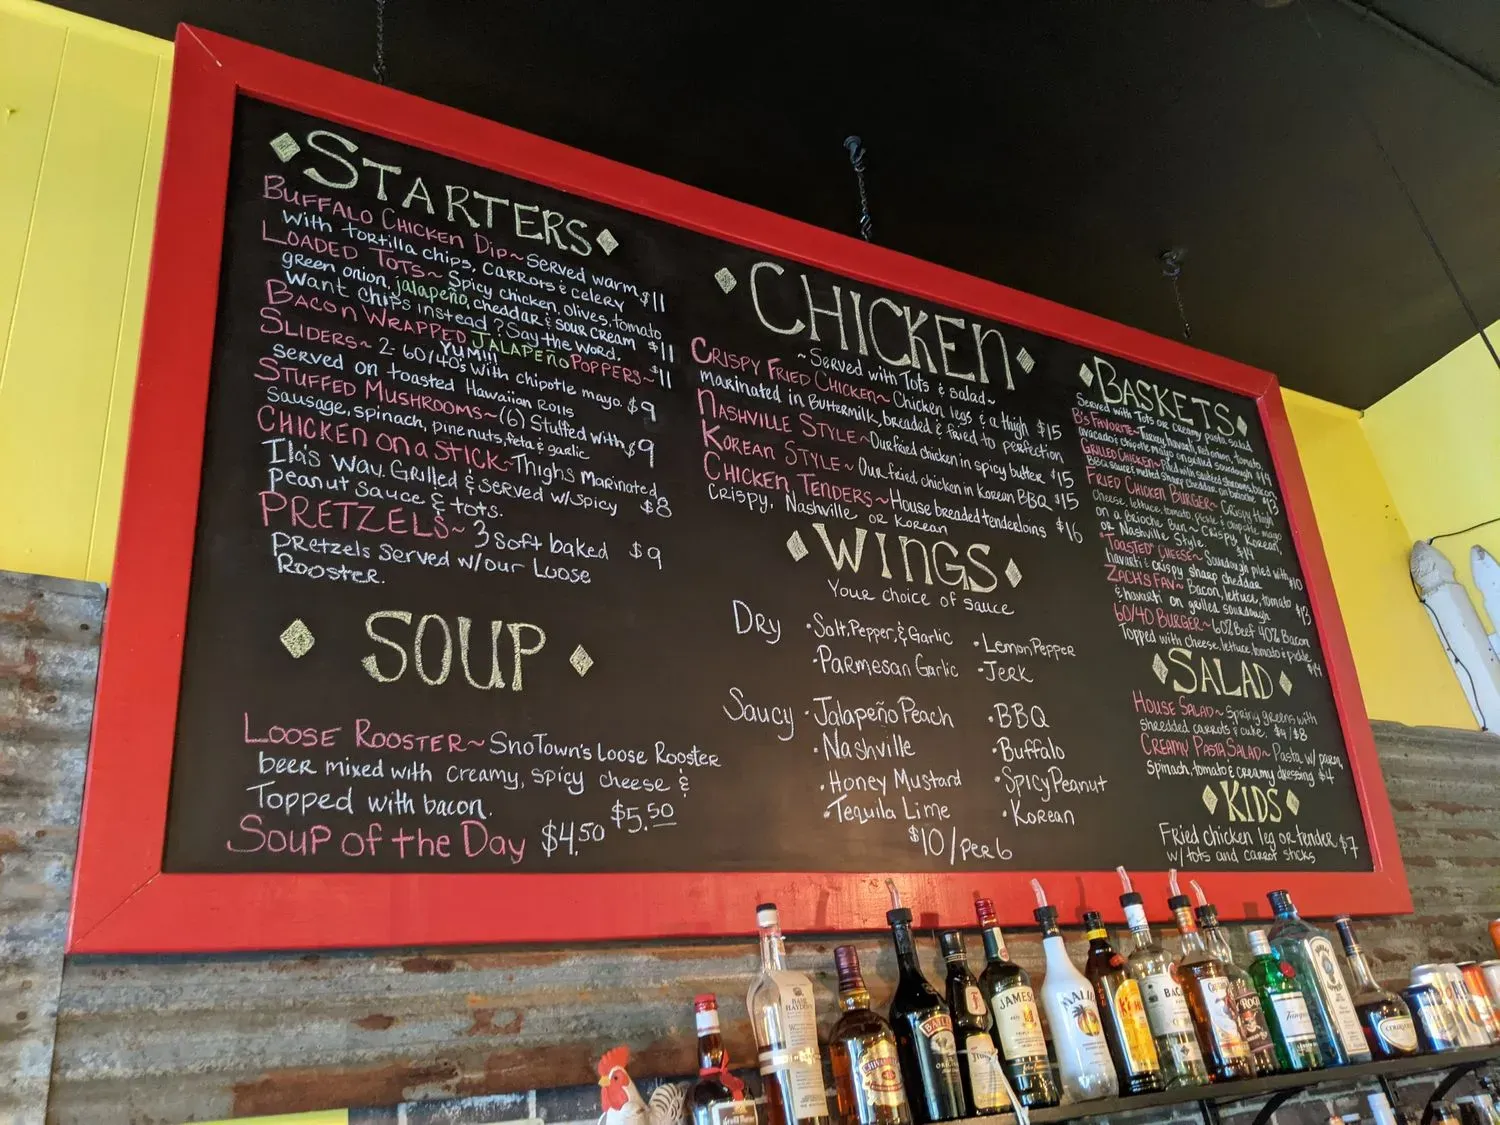 STARTERS
BUFFALO CHICKEN DIP~ Served warm
with tortilla chips, carrots & celery $11
LOADED TOTS~ Spicy chicken, olives, tomato,
green onion, jalapeño, cheddar & sour cream $11
Want chips instead? Say the word.
YUM!!!
BACON WRAPPED JALAPEÑO POPPERS~ $11
SLIDERS~ 2-60/40's with chipotle mayo. $9
served on toasted Hawaiian Rolls
STUFFED MUSHROOMS~ (6) Stuffed with $9
sausage, spinach, pinenuts, feta & garlic
CHICKEN on a STICK~ Thighs Marinated
Ila's Way. Grilled & served w/spicy $8
peanut sauce & tots.
PRETZELS~ 3 soft baked $9
pretzels served w/our Loose
Rooster.
SOUP
LOOSE ROOSTER~ SnoTown's Loose Rooster
beer mixed with creamy, spicy cheese &
Topped with bacon. $5.50
Soup of the Day $4.50
CHICKEN
~Served with Tots & salad~
CRISPY FRIED CHICKEN~ Chicken legs & a thigh $15
marinated in Buttermilk, breaded & fried to perfection
NASHVILLE STYLE~ Our fried chicken in spicy butter $15
KOREAN STYLE~ Our fried chicken in Korean BBQ $15
CHICKEN TENDERS~ House breaded tenderloins $16
crispy, Nashville or Korean
WINGS
Your choice of sauce
Dry
•Salt, Pepper, & Garlic •Lemon Pepper
•Parmesan Garlic •Jerk
Saucy
•Jalapeño Peach •BBQ
•Nashville •Buffalo
•Honey Mustard •Spicy Peanut
•Tequila Lime •Korean
$10/per 6
BASKETS
Served with Tots or creamy pasta salad
B's FAVORITE~ Turkey, havarti, red onion, tomato,
avocado & chipotle mayo on grilled sourdough $14
GRILLED CHICKEN~ Piled with sautéed shrooms, bacon,
BBQ sauce & melted sharp cheddar on brioche $13
FRIED CHICKEN BURGER~ Crispy thigh
cheese, lettuce, tomato, pickle & chipotle mayo
on a Brioche Bun~ Crispy, Korean,
or Nashville Style. $14
"TOASTED" CHEESE~ Sourdough piled with $10
havarti & crispy sharp cheddar
ZACH'S FAV~ Bacon, lettuce, tomato
& havarti on grilled sourdough $13
60/40 BURGER~ 60% Beef 40% Bacon
Topped with cheese, lettuce, tomato & pickle $14
SALAD
HOUSE SALAD~ Spring greens with
shredded carrots & cuke. $4/$8
CREAMY PASTA SALAD~ Pasta w/ parm,
spinach, tomato & creamy dressing $4
KIDS
Fried chicken leg or tender $7
w/tots and carrot sticks
BASIL HAYDEN'S
CHIVAS
BAILEYS
JAMESON
MALIBU
Tanqueray